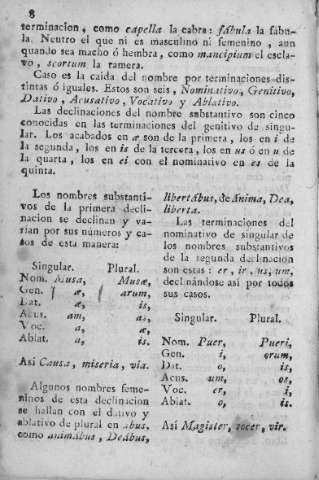 8
terminacion, como capella la cabra: fábula la fábu-
la. Neutro el que ni es masculino ni femenino, aun
quando sea macho ó hembra, como mancipium el escla-
vo, scortum la ramera.
Caso es la caida del nombre por terminaciones dis-
tintas ó iguales. Estos son seis, Nominativo, Genitivo,
Dativo, Acusativo, Vocativo y Ablativo.
Las declinaciones del nombre substantivo son cinco
conocidas en las terminaciones del genitivo de singu-
lar. Los acabados en æ son de la primera, los en i de
la segunda, los en is de la tercera, los en us ó en u de
la quarta, los en ei con el nominativo en es de la
quinta.
Los nombres substanti-
vos de la primera decli-
nacion se declinan y va-
rian por sus números y ca-
sos de esta manera:
Singular. Plural.
Nom. Musa, Musæ,
Gen. æ, arum,
Dat. æ, is,
Acus. am, as,
Voc. a, æ,
Ablat. a, is.
Asi Causa, miseria, via.
Algunos nombres feme-
ninos de esta declinacion
se hallan con el dativo y
ablativo de plural en abus.
como animábus, Deábus,
libertábus, de ánima, Dea,
liberta.
Las terminaciones del
nominativo de singular de
los nombres substantivos
de la segunda declinacion
son estas: er, ir, us, um,
declinándose asi por todos
sus casos.
Singular. Plural.
Nom. Puer, Pueri,
Gen. i, orum,
Dat. o, is,
Acus. um, os,
Voc. er, i,
Ablat. o, is.
Asi Magister, socer, vir.